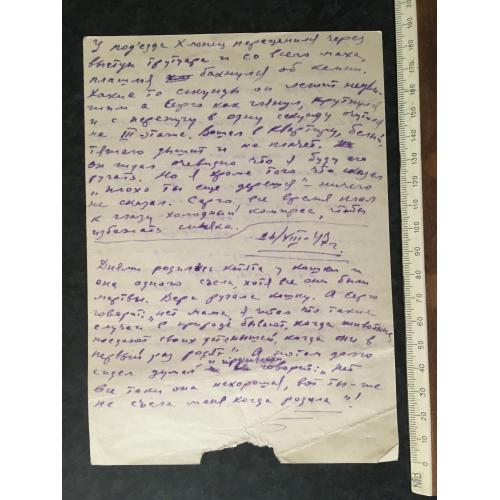 У под'езда хлопец перецепился через
выступ тротуара и со всего маха,
плашмя бахнулся об камни.
Какие то секунды он лежит недви-
жим а Серго как глянул, крутнулся
и с перепугу в одну секунду очутился
на III этаже. Вошел в квартиру, белый
тяжело дышит и не плачет.
он ждал очевидно что я буду его
ругать. Но я кроме того что сказал
"плохо ты еще дерешся" - ничего
не сказал. Серго, все время клал
к глазу холодный компрес, чтобы
избежать синяка.
24/VIII-47 г.
Днями родились котята у кошки и
она одного съела, хотя все они были
мертвы. Вера ругала кошку. А Серго
говорит: "нет мама, я читал что такие
случаи в природе бывают, когда животные
поедают своих детенышей, когда они в
первый раз родят". А потом долго
сидел думал и говорит: "нет
все таки она нехорошая, вот ты-же
не съела меня когда родила"!